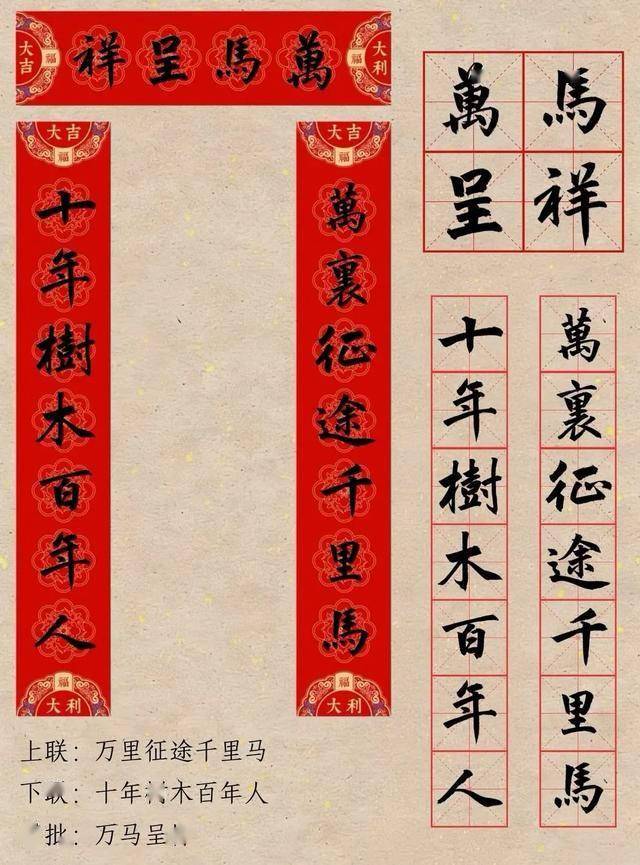 大吉
福
萬馬呈祥
福
大利
大吉
福
萬裏征途千里馬
福
大利
大吉
福
十年樹木百年人
福
大利
萬馬
呈祥
萬裏征途千里馬
十年樹木百年人
上联：万里征途千里马
下联：十年木百年人
批：万马呈